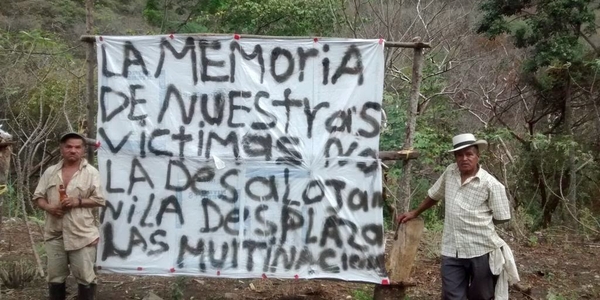 LA MEMORIA
DE NUESTRAS
VICTIMAS NO
LA DESALOJAN
NI LA DESPLAZA
LAS MUITINACIONA